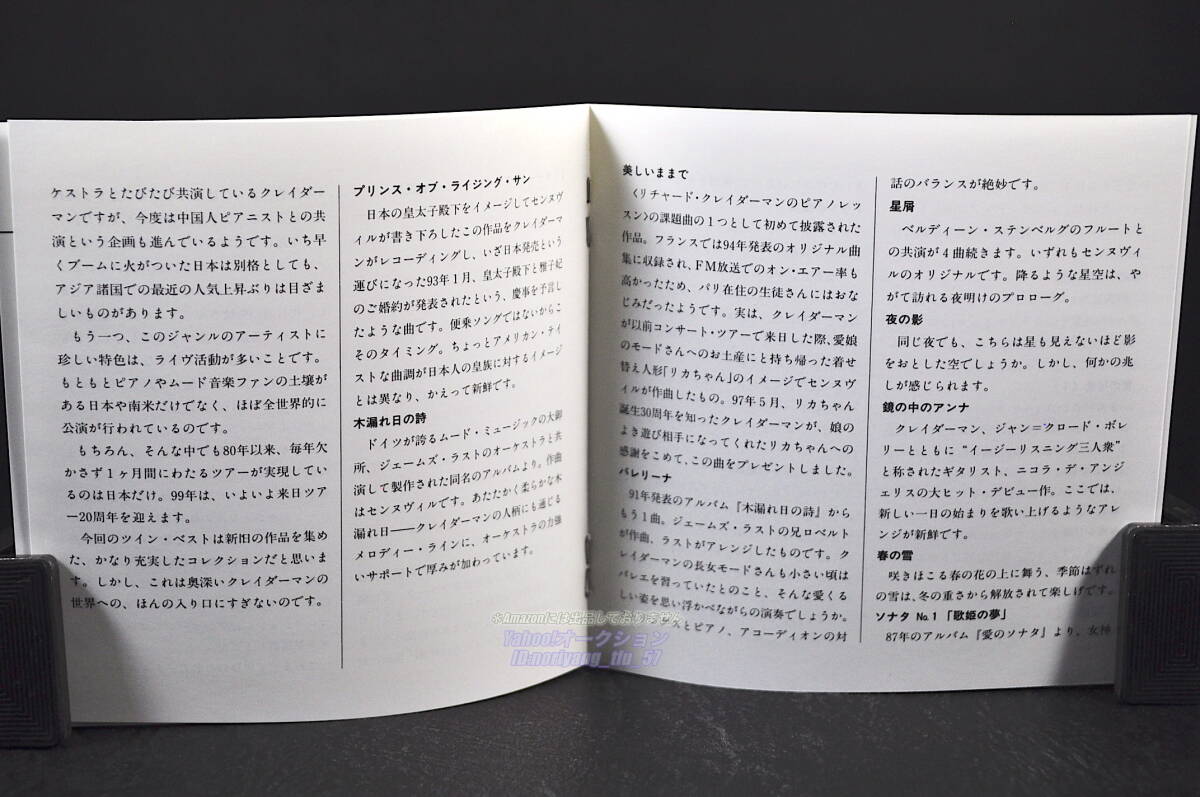 ケストラとたびたび共演しているクレイダー
マンですが、今度は中国人ピアニストとの共
演という企画も進んでいるようです。いち早
くブームに火がついた日本は別格としても、
アジア諸国での最近の人気上昇ぶりは目ざま
しいものがあります。
もう一つ、このジャンルのアーティストに
珍しい特色は、ライヴ活動が多いことです。
もともとピアノやムード音楽ファンの土壌が
ある日本や南米だけでなく、ほぼ全世界的に
公演が行われているのです。
もちろん、そんな中でも80年以来、毎年欠
かさず1ヶ月間にわたるツアーが実現してい
るのは日本だけ。99年は、いよいよ来日ツア
ー20周年を迎えます。
今回のツイン・ベストは新旧の作品を集め
た、かなり充実したコレクションだと思いま
す。しかし、これは奥深いクレイダーマンの
世界への、ほんの入り口にすぎないのです。
プリンス・オブ・ライジング・サン
日本の皇太子殿下をイメージしてセンヌヴ
ィルが書き下ろしたこの作品をクレイダーマ
ンがレコーディングし、いざ日本発売という
運びになった93年1月、皇太子殿下と雅子妃
のご婚約が発表されたという、慶事を予言し
たような曲です。便乗ソングではないからこ
そのタイミング。ちょっとアメリカン・テイ
ストな曲調が日本人の皇族に対するイメージ
とは異なり、かえって新鮮です。
木漏れ日の詩
ドイツが誇るムード・ミュージックの大御
所、ジェームズ・ラストのオーケストラと共
演して製作された同名のアルバムより。作曲
はセンヌヴィルです。あたたかく柔らかな木
漏れ日――クレイダーマンの人柄にも通じる
メロディー・ラインに、オーケストラの力強
いサポートで厚みが加わっています。
美しいままで
〈リチャード・クレイダーマンのピアノレッ
スン〉の課題曲の1つとして初めて披露された
作品。フランスでは94年発表のオリジナル曲
集に収録され、FM放送でのオン・エアー率も
高かったため、パリ在住の生徒さんにはおな
じみだったようです。実は、クレイダーマン
が以前コンサート・ツアーで来日した際、愛娘
のモードさんへのお土産にと持ち帰った着せ
替え人形「リカちゃん」のイメージでセンヌヴ
ィルが作曲したもの。97年5月、リカちゃん
誕生30周年を知ったクレイダーマンが、娘の
よき遊び相手になってくれたリカちゃんへの
感謝をこめて、この曲をプレゼントしました。
バレリーナ
91年発表のアルバム『木漏れ日の詩』から
もう1曲。ジェームズ・ラストの兄ロベルト
が作曲、ラストがアレンジしたものです。ク
レイダーマンの長女モードさんも小さい頃は
バレエを習っていたとのこと、そんな愛くる
しい姿を思い浮かべながらの演奏でしょうか。
スとピアノ、アコーディオンの対
話のバランスが絶妙です。
星屑
ベルディーン・ステンベルグのフルートと
の共演が4曲続きます。いずれもセンヌヴィ
ルのオリジナルです。降るような星空は、や
がて訪れる夜明けのプロローグ。
夜の影
同じ夜でも、こちらは星も見えないほど影
をおとした空でしょうか。しかし、何かの兆
しが感じられます。
鏡の中のアンナ
クレイダーマン、ジャン=クロード・ボレ
リーとともに“イージーリスニング三人衆”
と称されたギタリスト、ニコラ・デ・アンジ
ェリスの大ヒット・デビュー作。ここでは、
新しい一日の始まりを歌い上げるようなアレ
ンジが新鮮です。
春の雪
咲きほこる春の花の上に舞う、季節はずれ
の雪は、冬の重さから解放されて楽しげです。
ソナタ No.1「歌姫の夢」
87年のアルバム『愛のソナタ』より、女神
※Amazonには出品しておりません
Yahoo!オークション
ID:noriyang_tfu_57